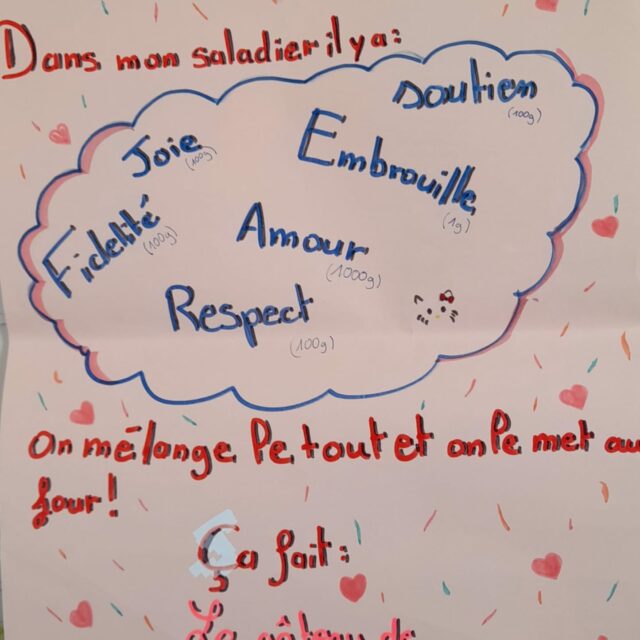 Dans mon saladier il y a:
soutien
(100g)
Joie
(100g)
Embrouille
(1g)
Fidelité
(100g)
Amour
(1000g)
Respect
(100g)
On mélange le tout et on le met au
four!
Ça fait:
Le gâteau de